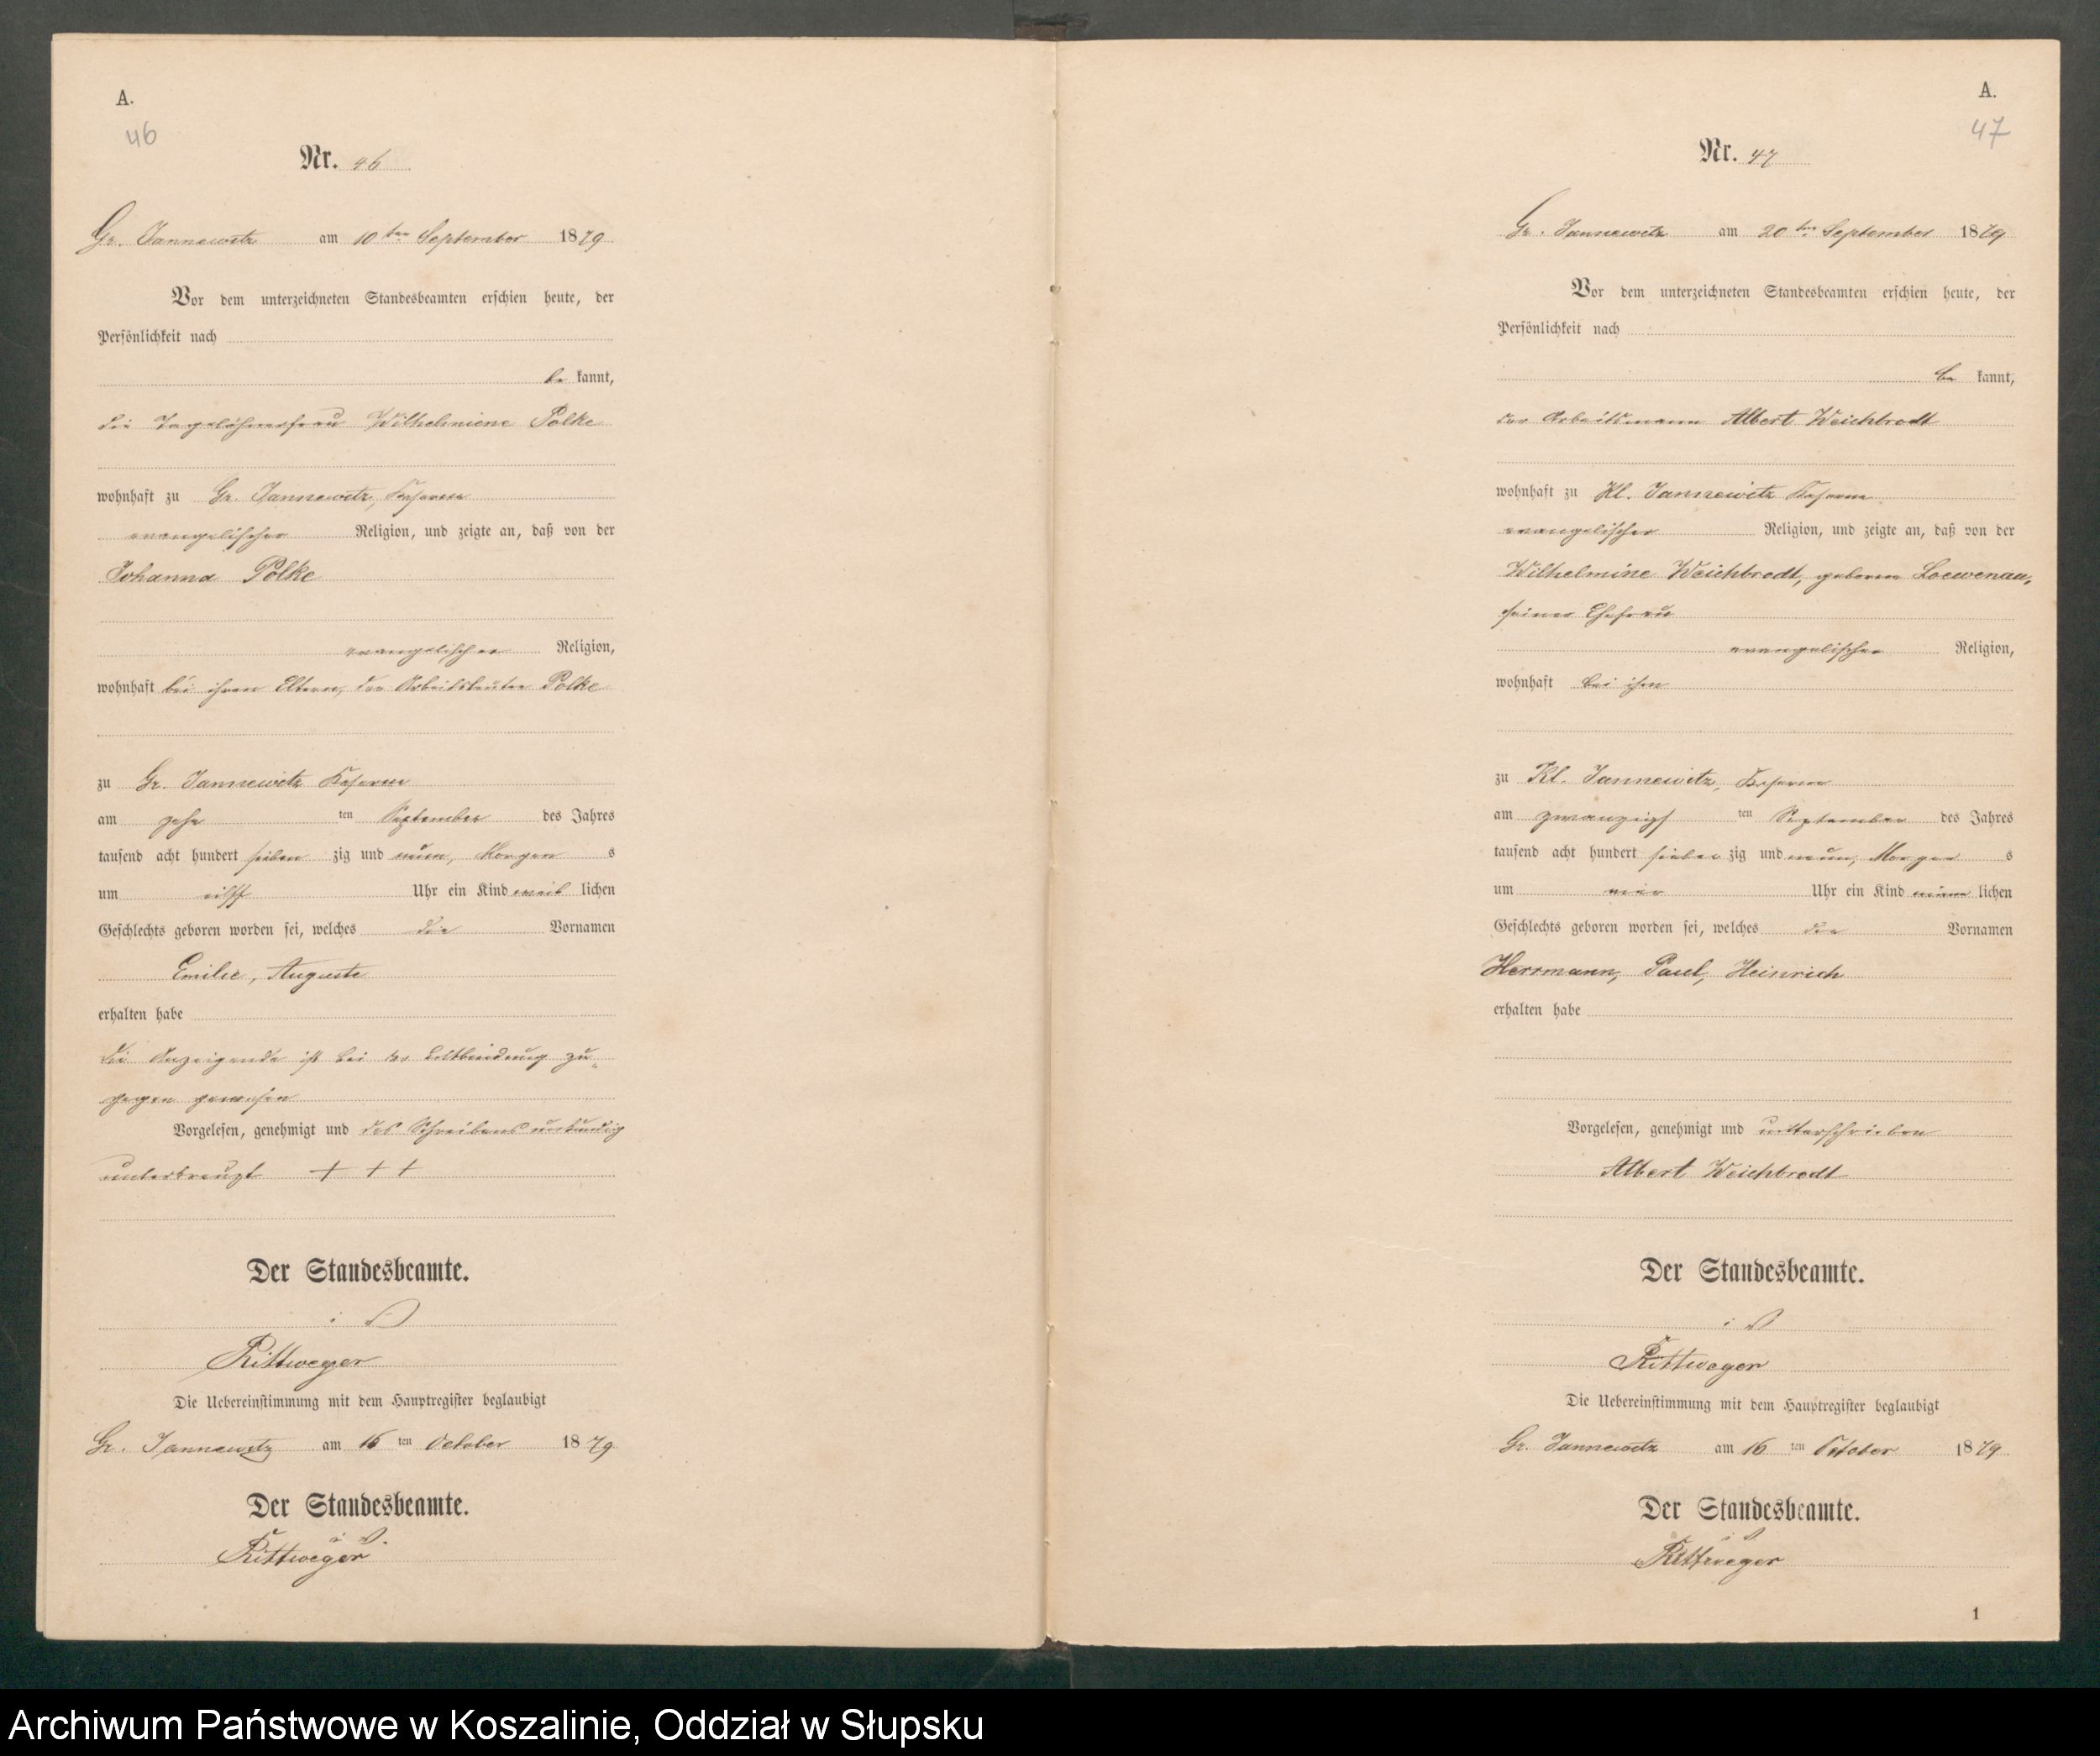 A.
46
Nr. 46
Gr. Jannewitz am 10ten September 1879
Vor dem unterzeichneten Standesbeamten erschien heute, der
Persönlichkeit nach
be kannt,
die Tagelöhnerfrau Wilhelmiene Polke
wohnhaft zu Gr. Jannewitz,
evangelischer Religion, und zeigte an, daß von der
Johanna Polke
evangelischer Religion,
wohnhaft bei ihren Eltern, der Arbeitsleuten Polke
zu Gr. Jannewitz
am zehn ten September des Jahres
tausend acht hundert sieben zig und neun, Morgen s
um eilff Uhr ein Kind weib lichen
Geschlechts geboren worden sei, welches die Vornamen
Emilie, Auguste
erhalten habe
Die Anzeigende ist bei der Entbindung zu-
gegen gewesen
Vorgelesen, genehmigt und des Schreibens unkundig
unterkreuzt + + +
Der Standesbeamte.
Rittweger
Die Uebereinstimmung mit dem Hauptregister beglaubigt
Gr. Jannewitz am 16 ten October 1879
Der Standesbeamte.
Rittweger
A.
47
Nr. 47
Gr. Jannewitz am 20ten September 1879
Vor dem unterzeichneten Standesbeamten erschien heute, der
Persönlichkeit nach
be kannt,
der Arbeitsmann Albert Weichbrodt
wohnhaft zu Kl. Jannewitz
evangelischer Religion, und zeigte an, daß von der
Wilhelmine Weichbrodt, geboren Loewenau,
seiner Ehefrau
evangelischer Religion,
wohnhaft bei ihm
zu Kl. Jannewitz,
am zwanzigs ten September des Jahres
tausend acht hundert sieben zig und neun, Morgen s
um vier Uhr ein Kind männ lichen
Geschlechts geboren worden sei, welches die Vornamen
Herrmann, Paul, Heinrich
erhalten habe
Vorgelesen, genehmigt und unterschrieben
Albert Weichbrodt
Der Standesbeamte.
Rittweger
Die Uebereinstimmung mit dem Hauptregister beglaubigt
Gr. Jannewitz am 16 ten October 1879
Der Standesbeamte.
Rittweger
1
Archiwum Państwowe w Koszalinie, Oddział w Słupsku